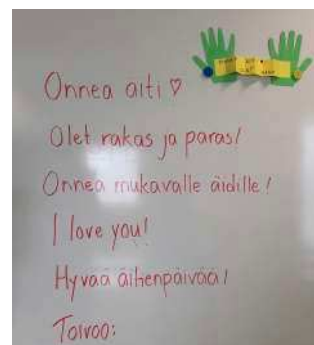 Onnea äiti ♡
Olet rakas ja paras!
Onnea mukavalle äidille!
I love you!
Hyvää äitienpäivää!
Toivoo: